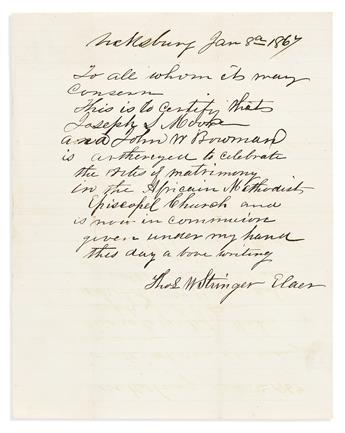 Vicksburg Jan 8th 1867
To all whom its may
Consern
This is to Certify that
Joseph S Moore
and John W Bowman
is atherized to celebrate
the rites of matrimony
in the African Methodist
Episcopel Church and
is now in commuion
given under my hand
this day a bove writing
Thos W Stringer Elder